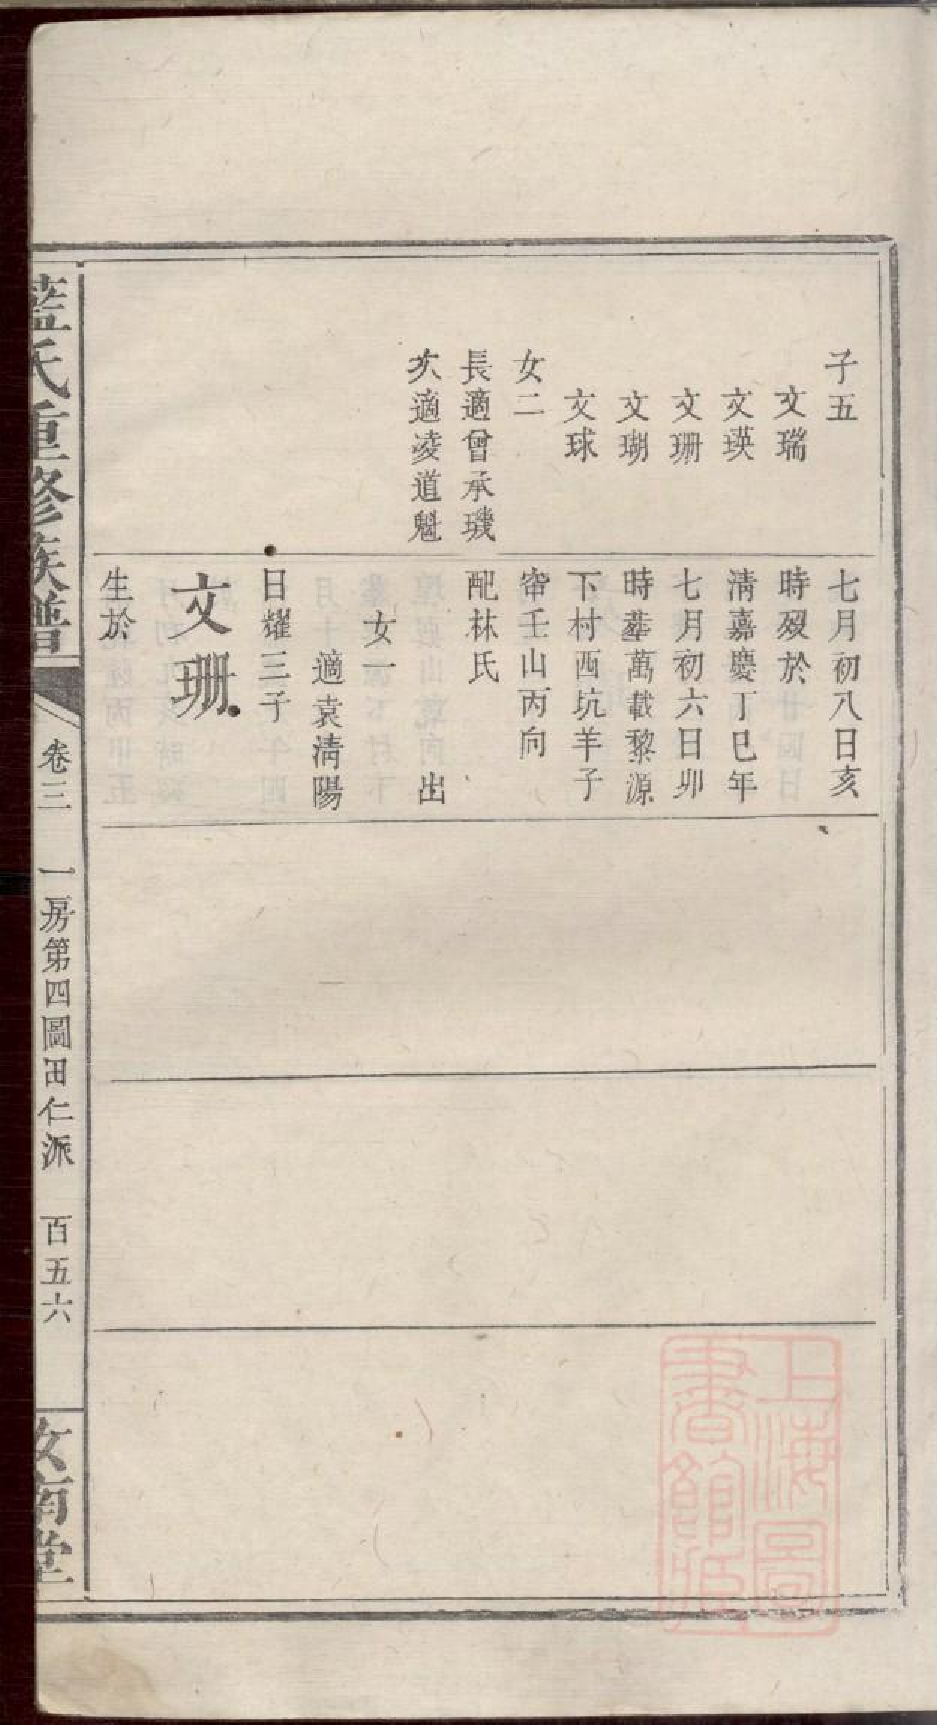 子五
文瑞
文瑛
文珊
文瑚
文球
女二
長適曾承璣
次適凌道魁
七月初八日亥
時歿於
清嘉慶丁巳年
七月初六日卯
時塟萬載黎源
下村西坑羊子
窜壬山丙向
配林氏
出
女一
適袁清陽
日耀三子
文珊
生於
藍氏重修族譜
卷三
一房第四圖田仁派
百五六
汝南堂
上海圖
書館藏